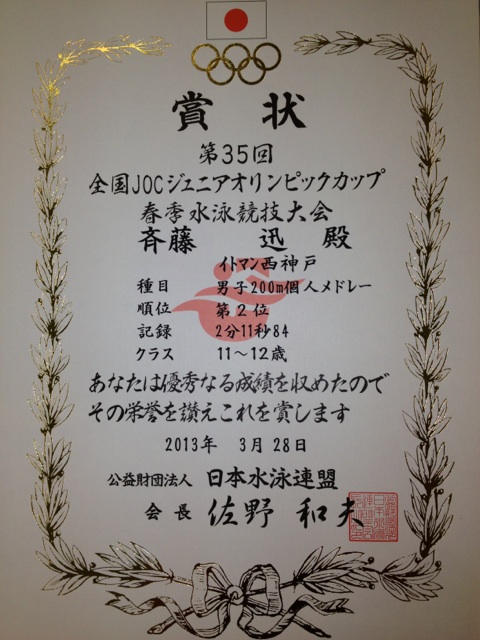 賞状
第35回
全国JOCジュニアオリンピックカップ
春季水泳競技大会
斉藤 迅 殿
イトマン西神戸
種目 男子200m個人メドレー
順位 第2位
記録 2分11秒84
クラス 11〜12歳
あなたは優秀なる成績を収めたので
その栄誉を讃えこれを賞します
2013年 3月28日
公益財団法人 日本水泳連盟
会長 佐野和夫